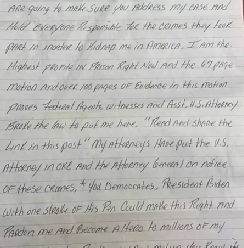 Are going to make sure you address my case and
Hold Everyone Responsible for the crimes they took
part in inorder to Kidnap me in America. I am the
Highest profile in Prison Right Now and the 67 page
Motion and over 100 pages of Evidence in this motion
proves Federal Agents, witnesses and Asst. U.S. Attorney
Broke the law to put me here. "Read and share the
Link in this post" My attorneys Have put the U.S.
Attorney in OKC and the Attorney General on notice
OF these crimes, & you Democrates, President Biden
with one stroke of His Pin Could make this Right and
Pardon me and Become a Hero to millions of my